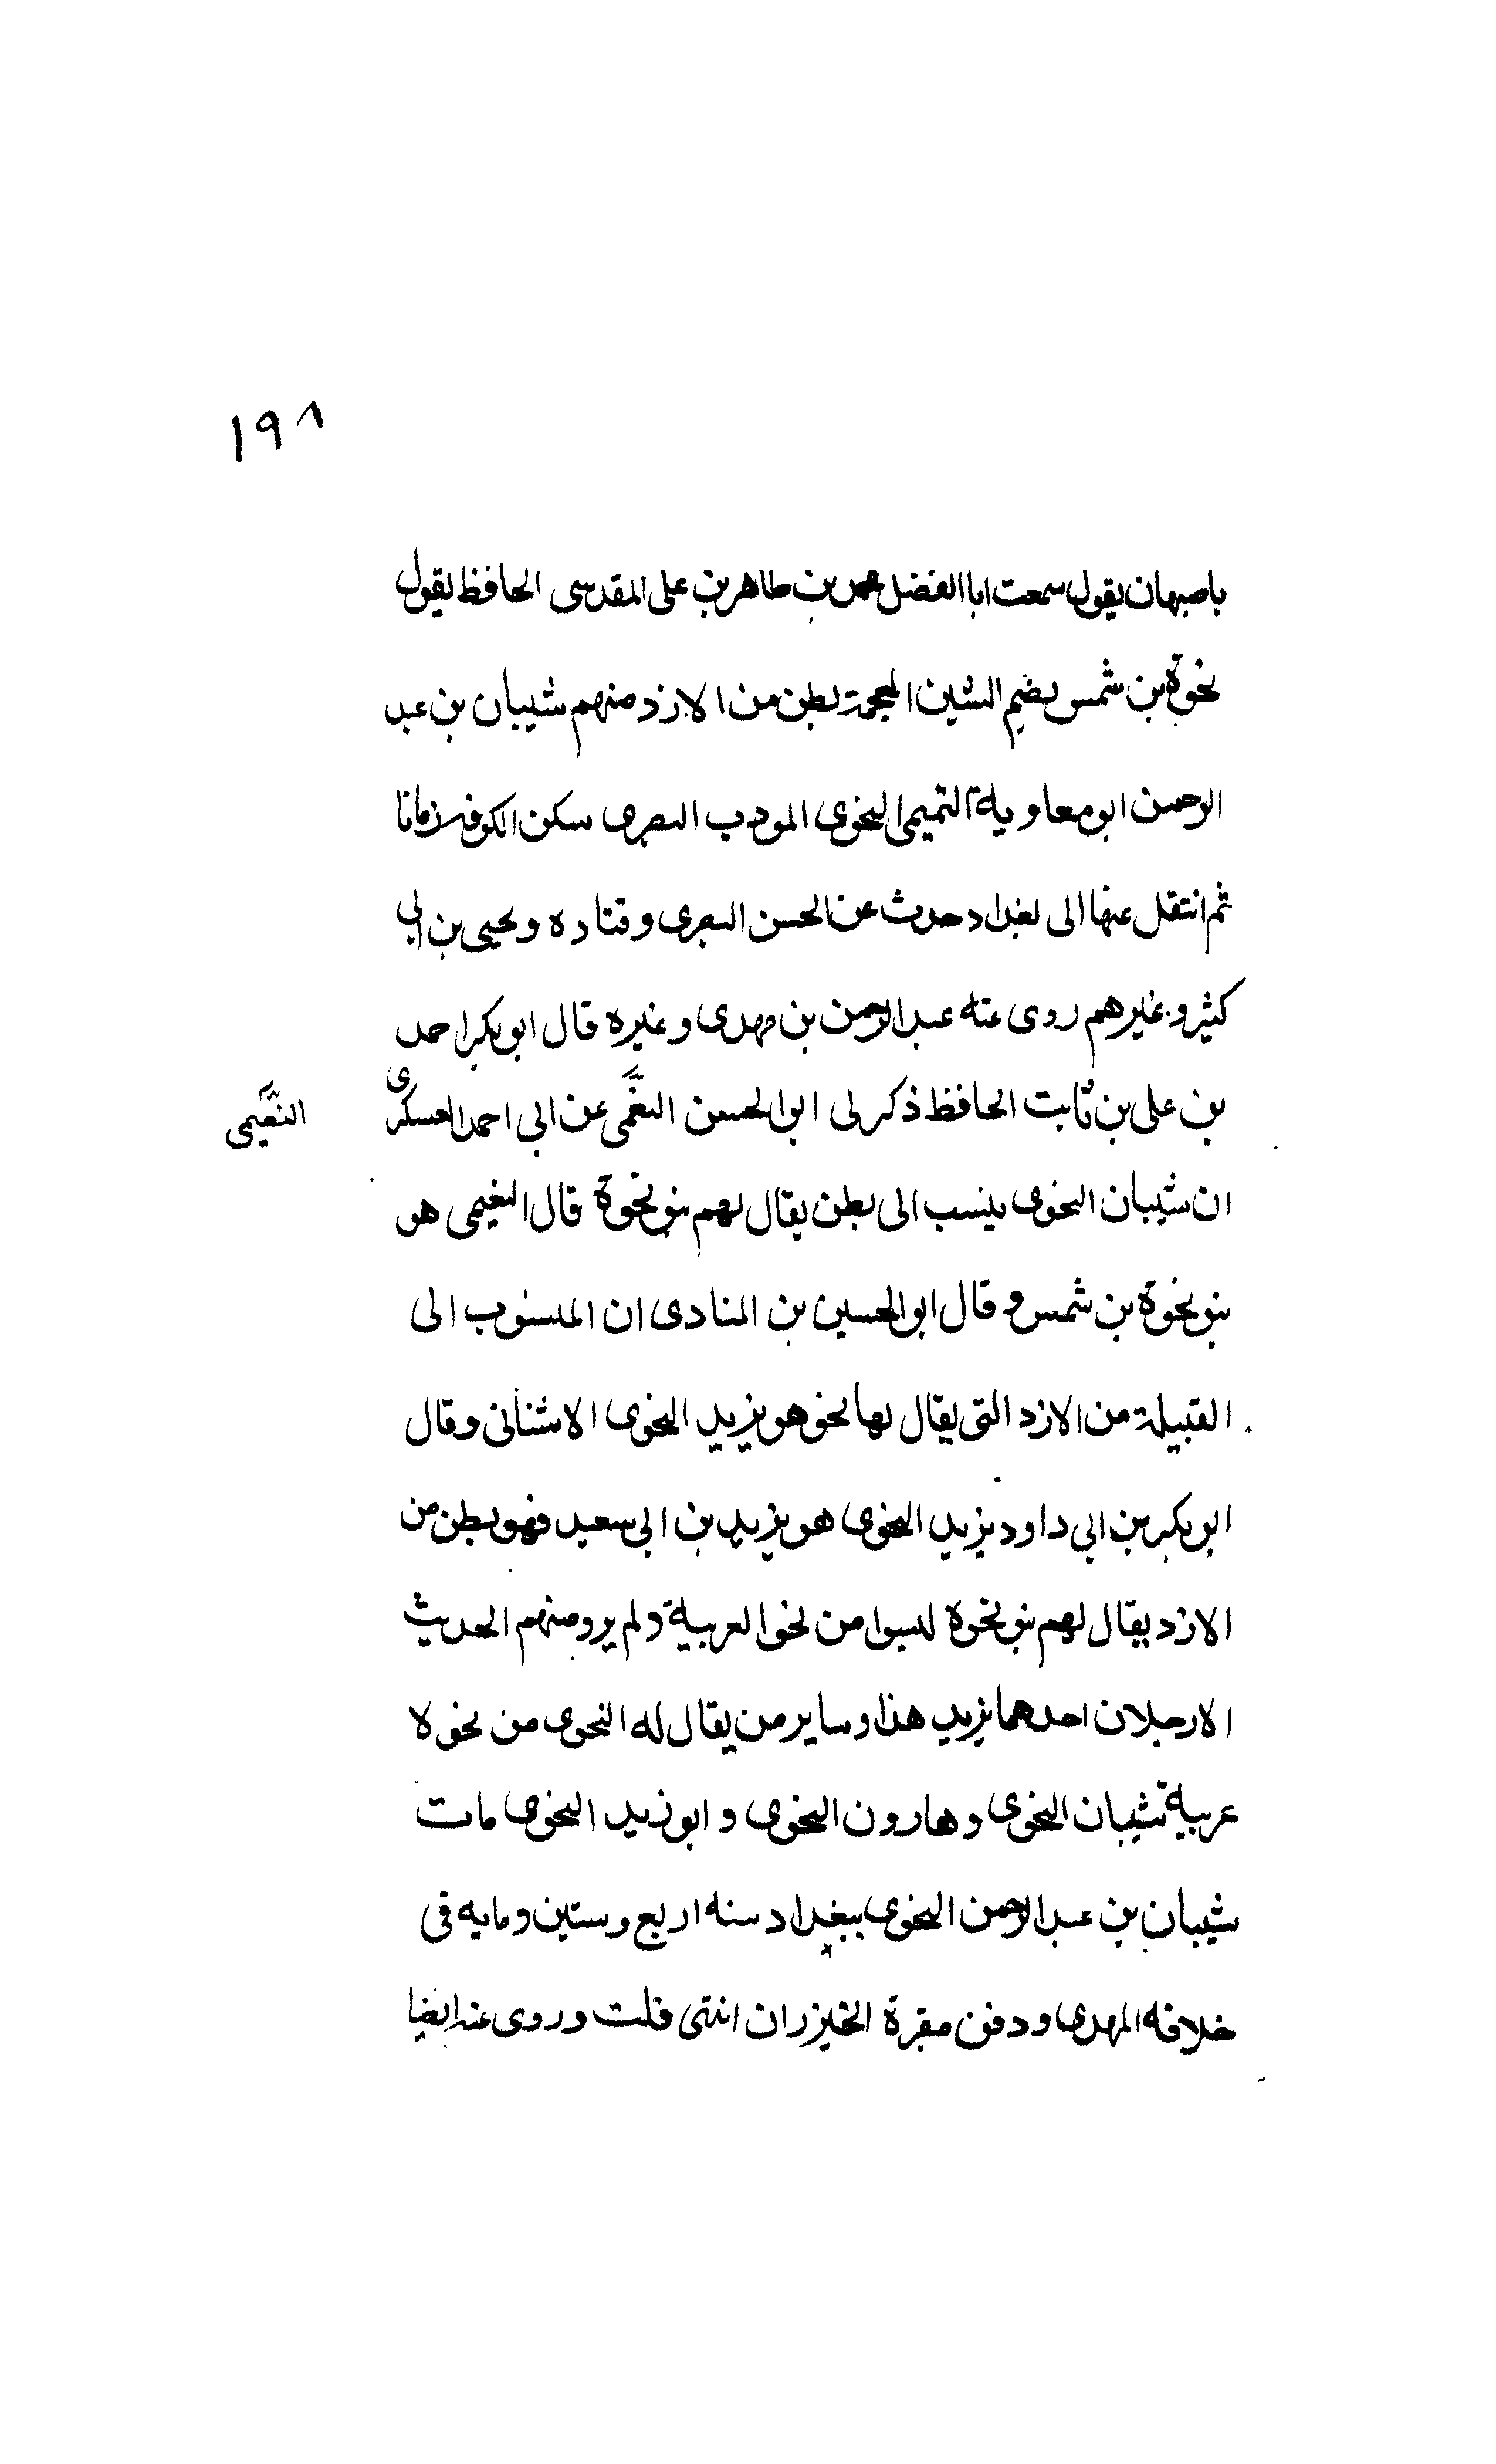 ١٩٨
باصبهان يقول سمعت ابا الفضل محمد بن طاهر بن على المقدسى الحافظ يقول
نحوة بن شمس بضم الشين المعجمة بطن من الازد منهم شيبان بن عبد
الرحمن ابو معاوية التميمى النحوى المودب البصرى سكن الكوفة زمانا
ثم انتقل عنها الى بغداد حدث عن الحسن البصرى وقتاده ويحيى بن ابى
كثير وغيرهم روى عنه عبد الرحمن بن مهدى وغيره قال ابو بكر احمد
بن على بن ثابت الحافظ ذكر لى ابو الحسن النعمى عن ابى احمد العسكرى
النعيمى
ان شيبان النحوى ينسب الى بطن يقال لهم بنو نحوة قال النعيمى هو
بنو نحوة بن شمس وقال ابو الحسين بن المنادى ان المنسوب الى
القبيلة من الازد التى يقال لها نحو هو يزيد النحوى الاشنانى وقال
ابو بكر بن ابى داود يزيد النحوى هو يزيد بن ابى سعيد فهو بطن من
الازد يقال لهم بنو نحوة ليسوا من نحو العربية ولم يرو منهم الحديث
الارجلان احدهما يزيد هذا وساير من يقال له النحوى من نحو لا
عربية شيبان النحوى وهارون النحوى وابو زيد النحوى مات
شيبان بن عبد الرحمن النحوى ببغداد سنه اربع وستين ومايه فى
خلافه المهدى ودفن مقبرة الخيزران انتهى قلت وروى عنه ايضا